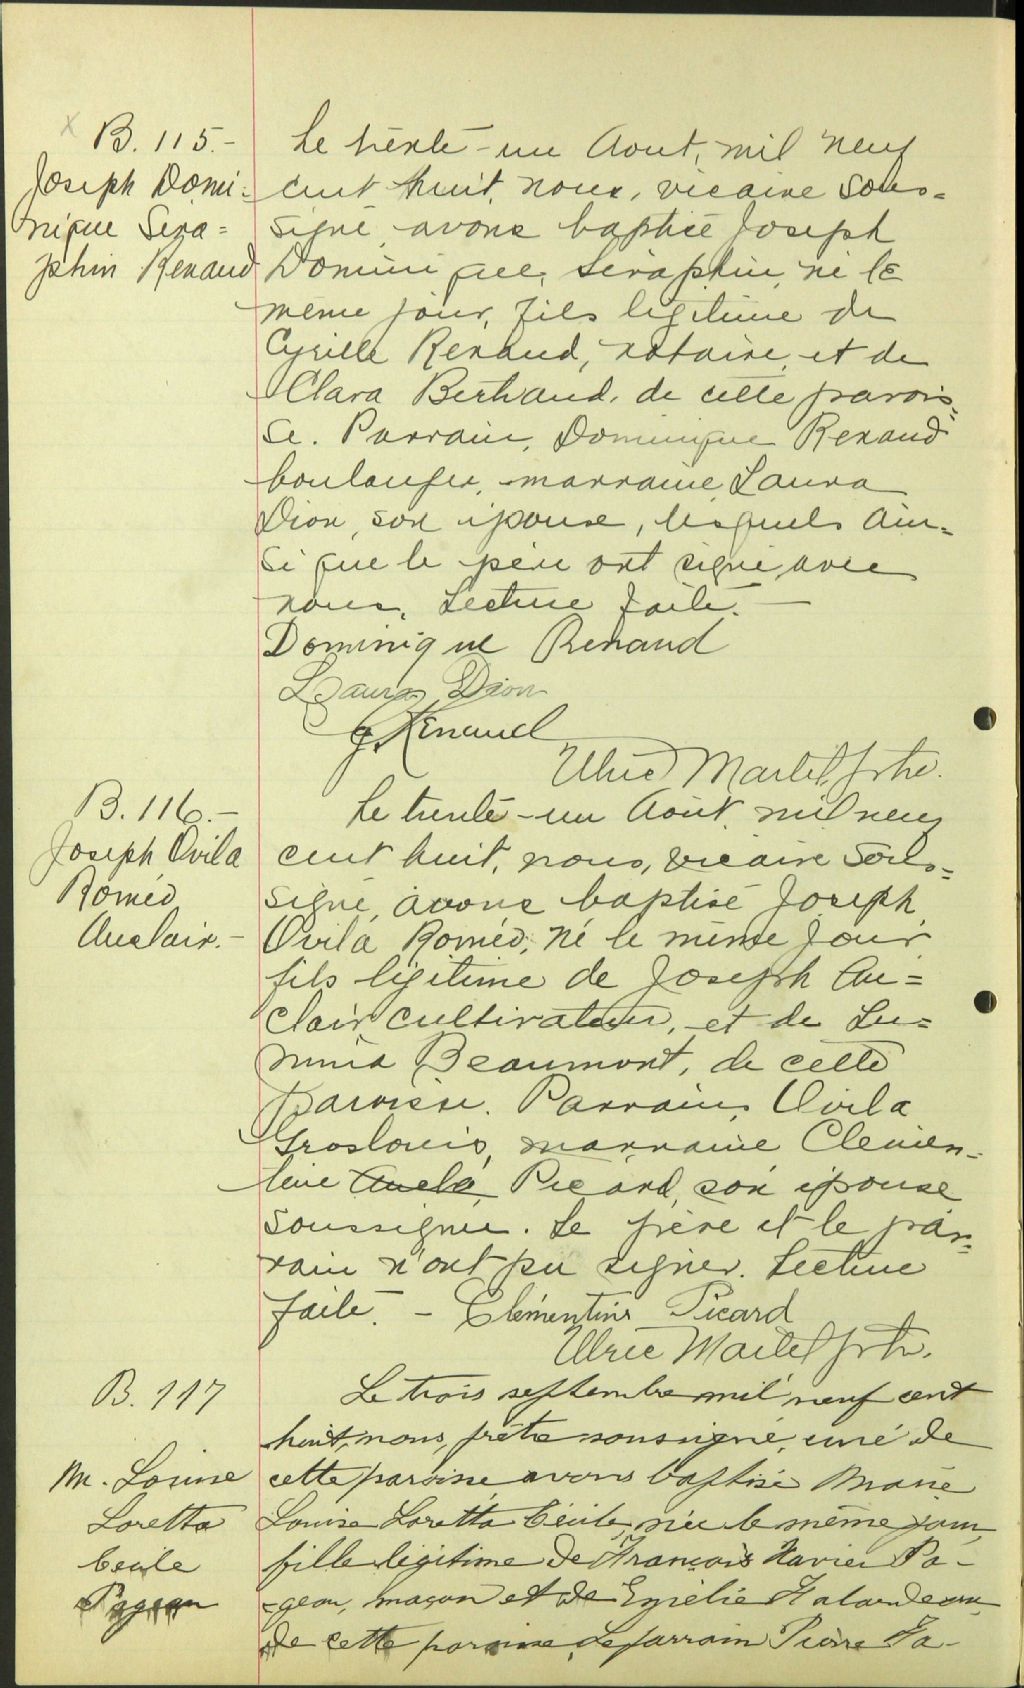 B. 115.-
Joseph Domi=
nique Séra=
phin Renaud
Le trente-un Aout, mil neuf
cent huit, nous, vicaire sous=
signé, avons baptisé Joseph
Dominique, Séraphin, né le
même jour, fils légitime de
Cyrille Renaud, notaire, et de
Clara Bertrand, de cette parois=
se. Parrain, Dominique Renaud
boulanger, marraine Laura
Dion, son épouse, lesquels ain=
si que le père ont signé avec
nous. Lecture faite.-
Dominique Renaud
Laura Dion
Renaud
Ulric Martel ptre.
B. 116.-
Joseph Ovila
Roméo,
Auclair.-
Le trente-un Août, mil neuf
cent huit, nous, vicaire sous=
signé, avons baptisé Joseph,
Ovila Roméo, né le même jour
fils légitime de Joseph Au=
clair, cultivateur, et de Lu=
minia Beaumont, de cette
paroisse. Parrain, Ovila
Groslouis, marraine Clémen=
tine Picard, son épouse
soussignée. Le père et le par=
rain n'ont pu signer. Lecture
faite.- Clémentine Picard
Ulric Martel ptre.
B. 117
M. Louise
Loretta
Cécile
Pageau
Le trois septembre mil neuf cent
huit, nous, prêtre soussigné, curé de
cette paroisse avons baptisé Marie
Louise Loretta Cécile, née le même jour,
fille légitime de François Xavier Pa-
geau, maçon et de
de cette paroisse. Le parrain Pierre Fa-